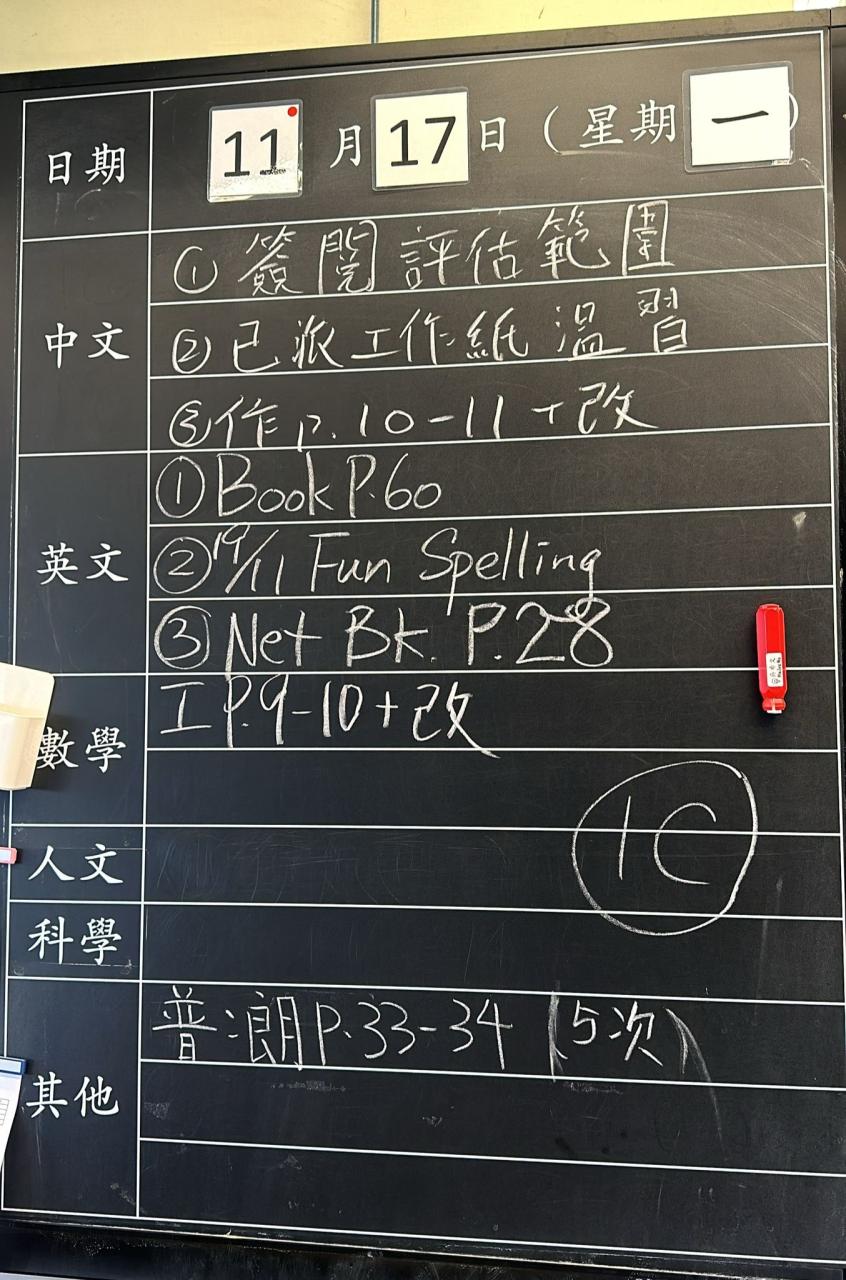 日期 11 月 17 日 ( 星期 一 )
中文
① 簽閱評估範圍
② 已派工作紙溫習
③ 作 p. 10-11 + 改
英文
① Book P.60
② 19/11 Fun Spelling
③ Net Bk. P.28
數學
工 P.9-10 + 改
1C
人文
科學
其他
普浪 P.33-34 (5次)